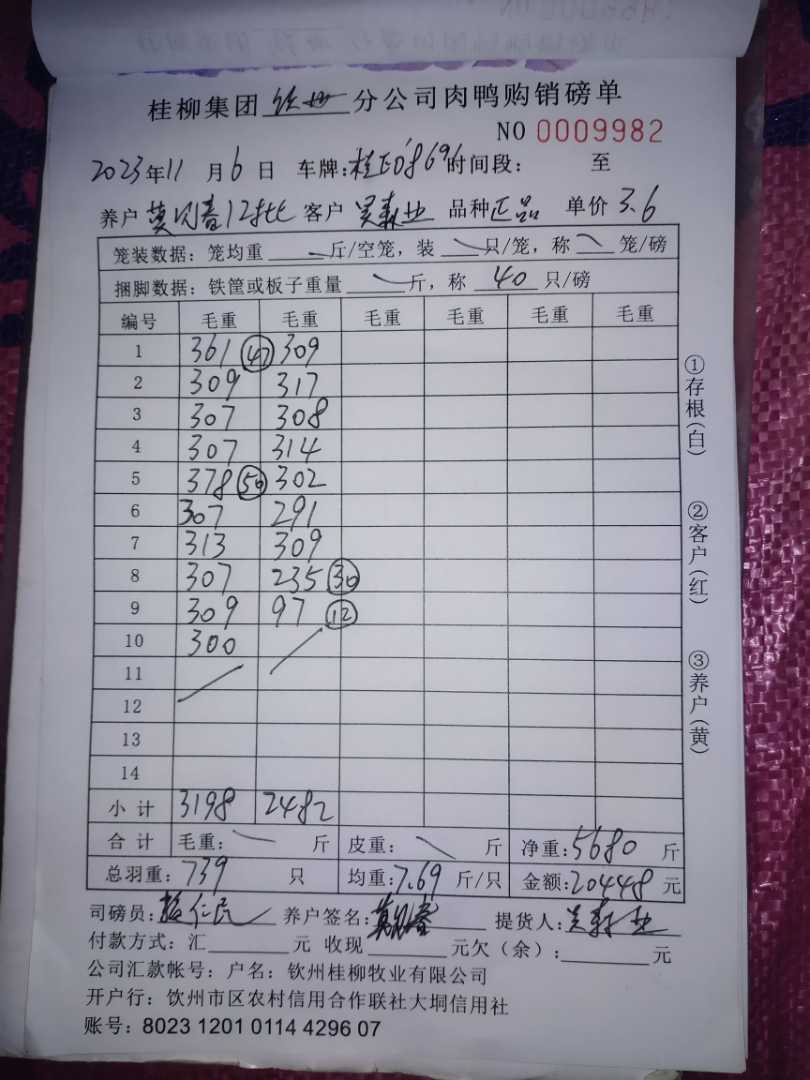 桂柳集团钦州分公司肉鸭购销磅单
NO 0009982
2023年11月6日 车牌:桂D08696时间段: 至
养户 莫闪春12批 客户 吴森业 品种正品 单价3.6
笼装数据:笼均重 斤/空笼,装 只/笼,称 笼/磅
捆脚数据:铁筐或板子重量 斤,称 40 只/磅
编号 毛重 毛重 毛重 毛重 毛重 毛重
1 361 (47) 309
2 309 317
3 307 308
4 307 314
5 378 (50) 302
6 307 291
7 313 309
8 307 235 (30)
9 309 97 (12)
10 300
11
12
13
14
小计 3198 2482
合计 毛重: 斤 皮重: 斤 净重:5680 斤
总羽重:739 只 均重:7.69 斤/只 金额:20448元
司磅员: 仁民 养户签名: 提货人:吴森业
付款方式:汇 元 收现 元欠(余): 元
公司汇款帐号:户名:钦州桂柳牧业有限公司
开户行:饮州市区农村信用合作联社大垌信用社
账号:8023 1201 0114 4296 07
①存根(白)
②客户(红)
③养户(黄)